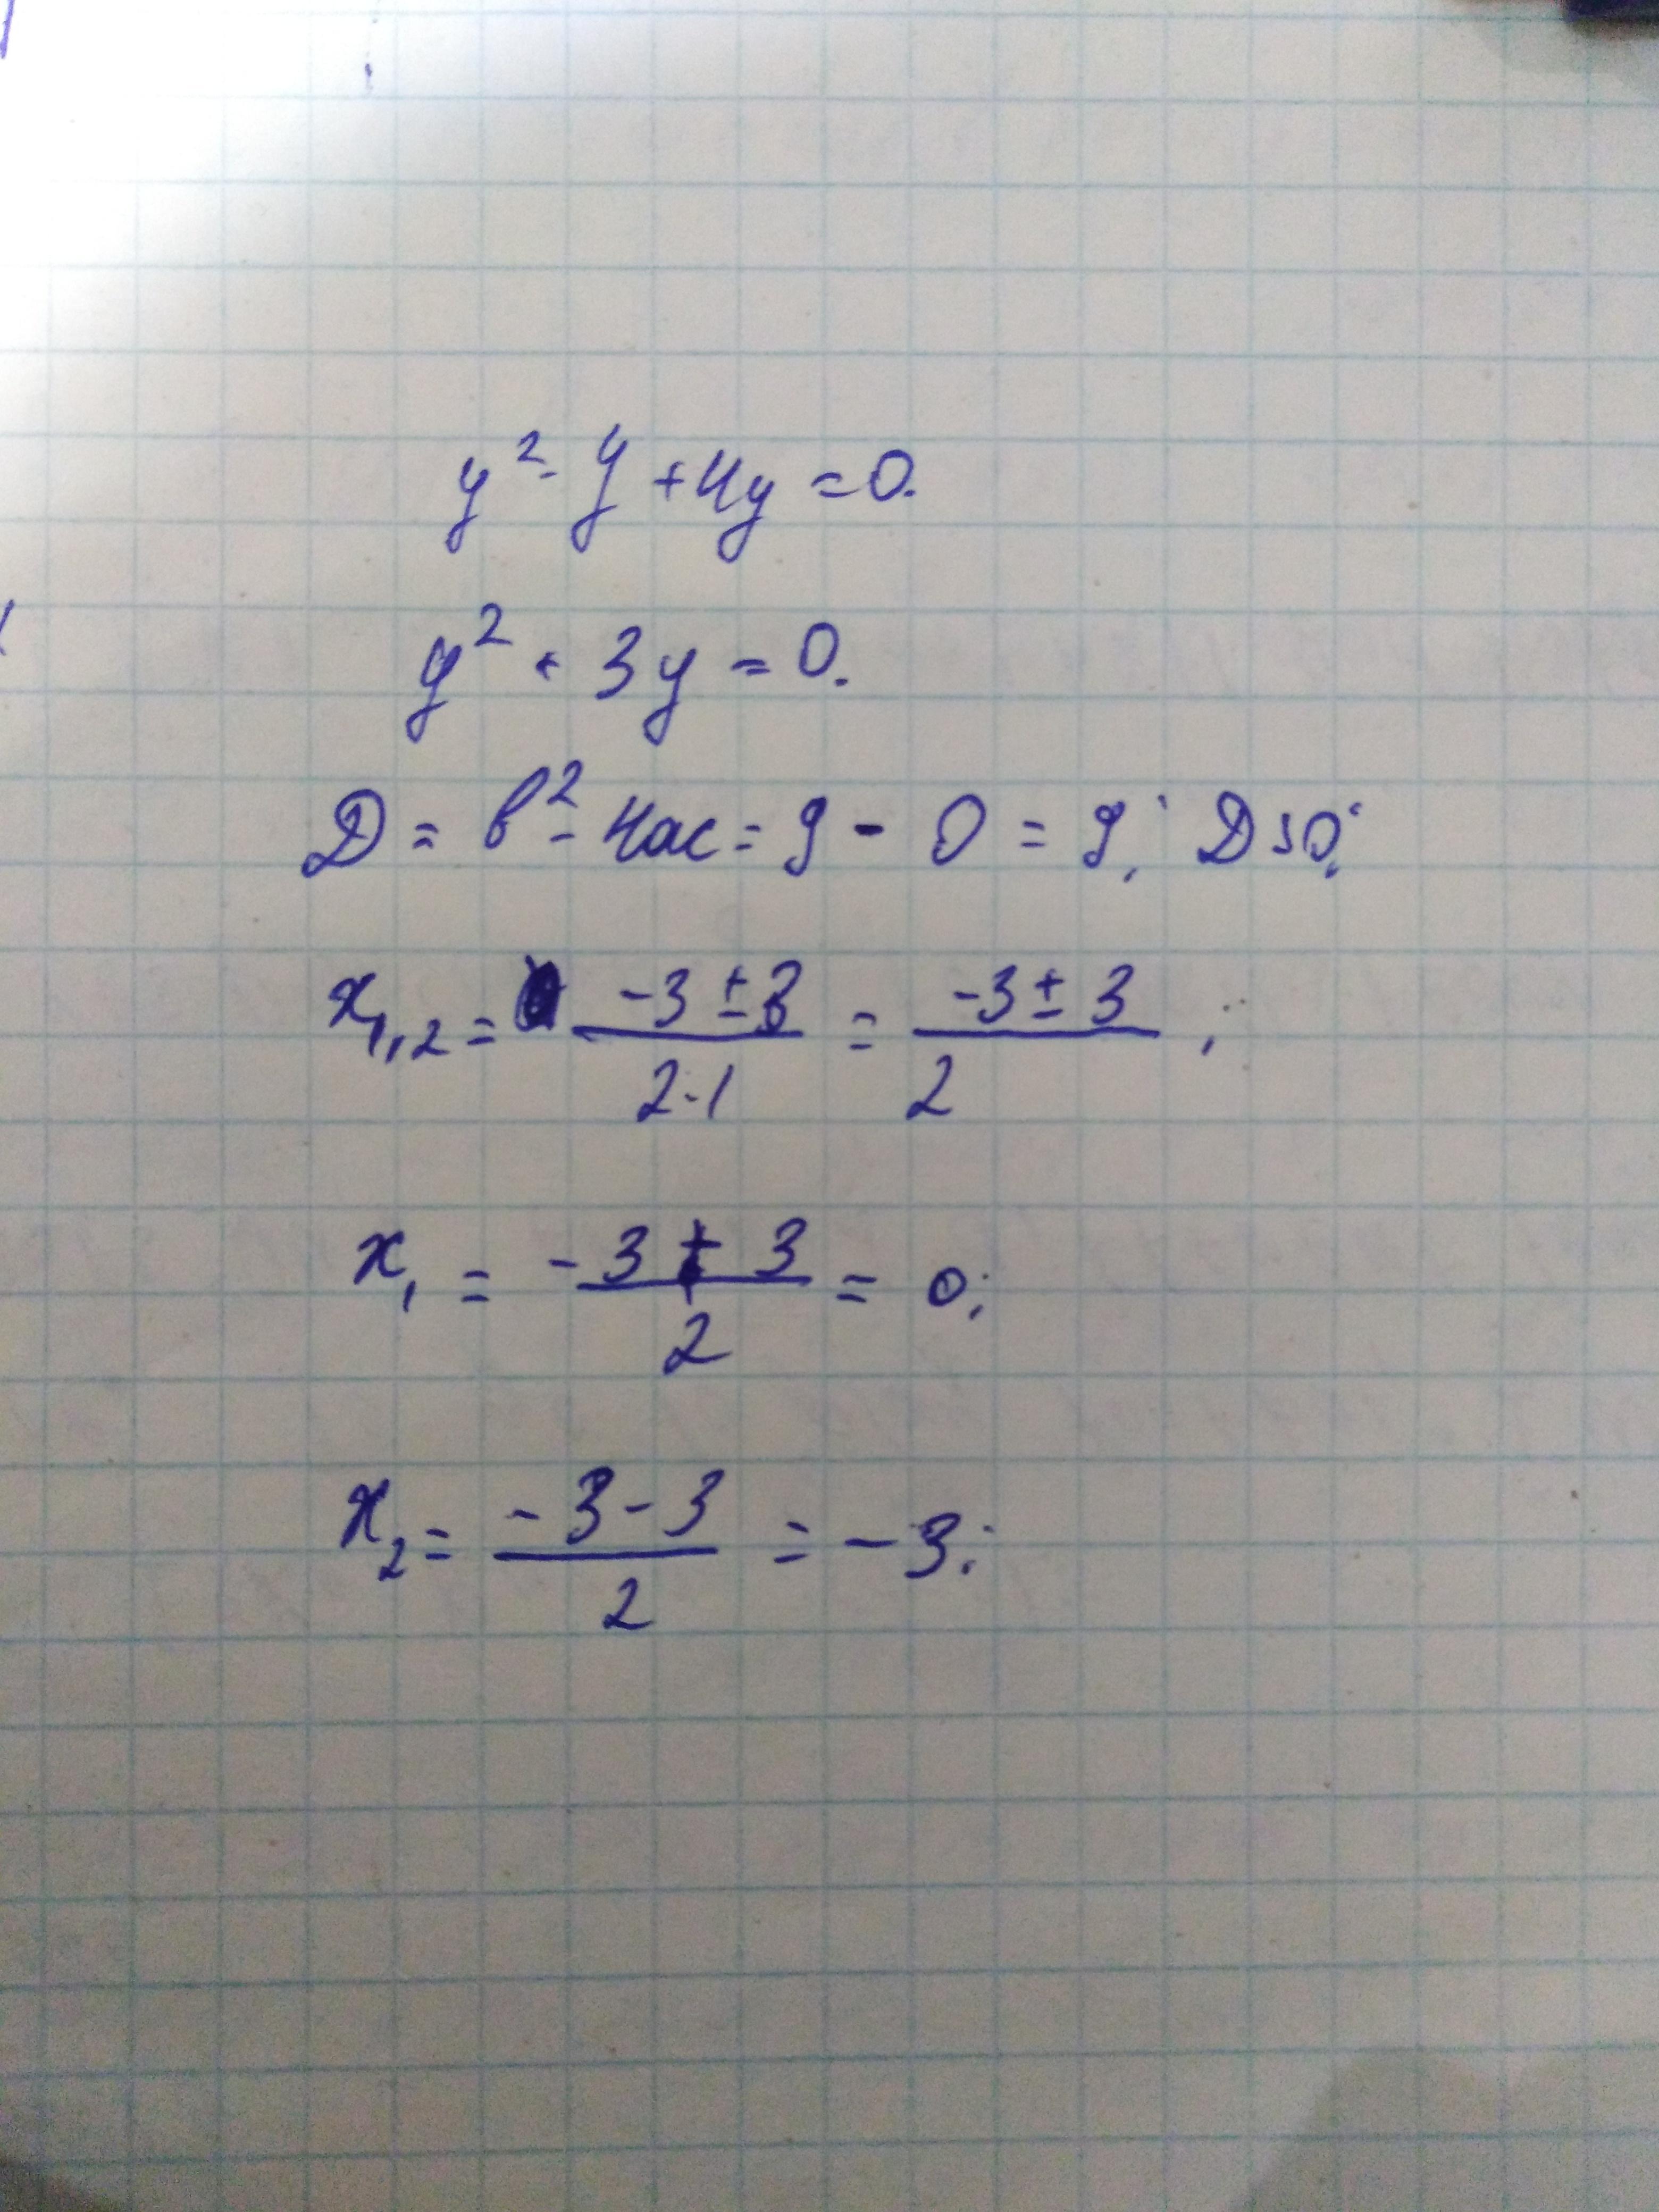 y² - y + 4y = 0.
y² + 3y = 0.
D = b² - 4ac = 9 - 0 = 9; D > 0;
x₁,₂ = (-3 ± 3)/(2·1) = (-3 ± 3)/2;
x₁ = (-3 + 3)/2 = 0;
x₂ = (-3 - 3)/2 = -3;